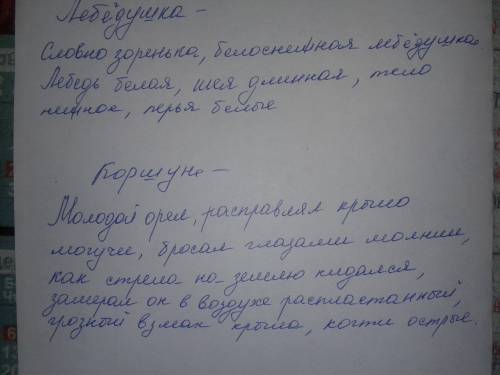 Лебёдушка –
Словно зоренька, белоснежная лебёдушка.
Лебедь белая, шея длинная, тело
нежное, перья белые
Коршун –
Молодой орел, расправлял крыло
могучее, бросал глазами молнии,
как стрела на землю кидался,
замирал он в воздухе распластанный,
грозный взмах крыла, когти острые.